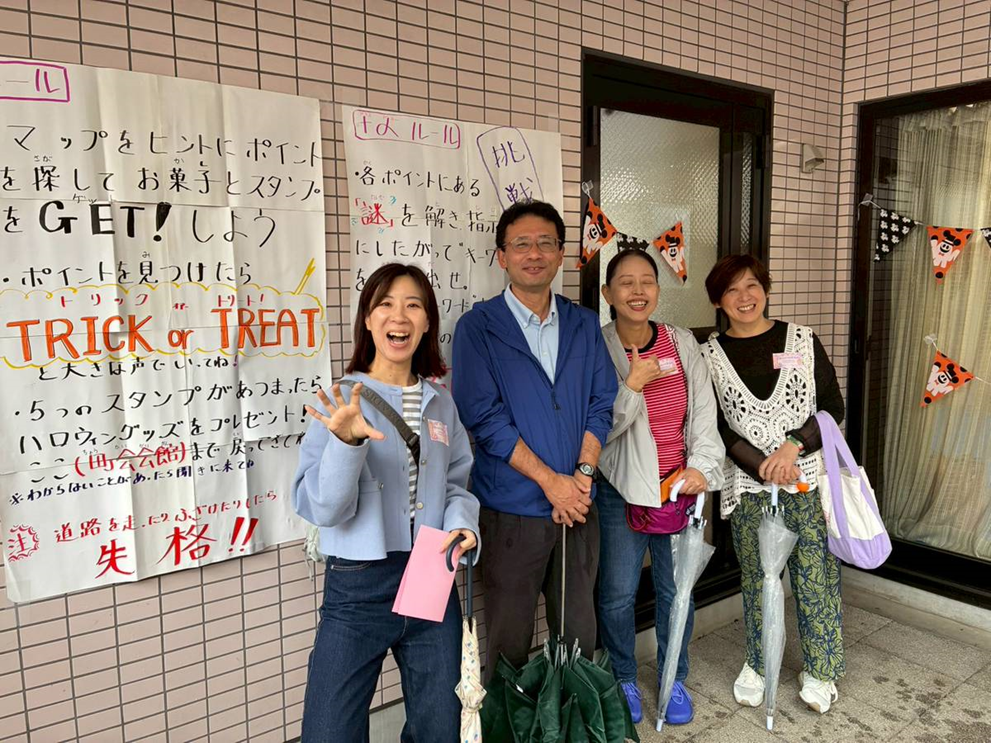 ール
マップをヒントにポイント
を探してお菓子とスタンプ
をGET!しよう
・ポイントを見つけたら
トリック or トリート!
TRICK or TREAT
と大きな声でいってね!
・5つのスタンプがあつまったら
ハロウィングッズをプレゼント!
ここ(町会会館)まで戻ってきてね
※わからないことがあったら聞きに来てね
注 道路を走ったりふざけたりしたら
失格!!
ルール
挑戦
・各ポイントにある
「謎」を解き指
にしたがってキー
を
出せ。